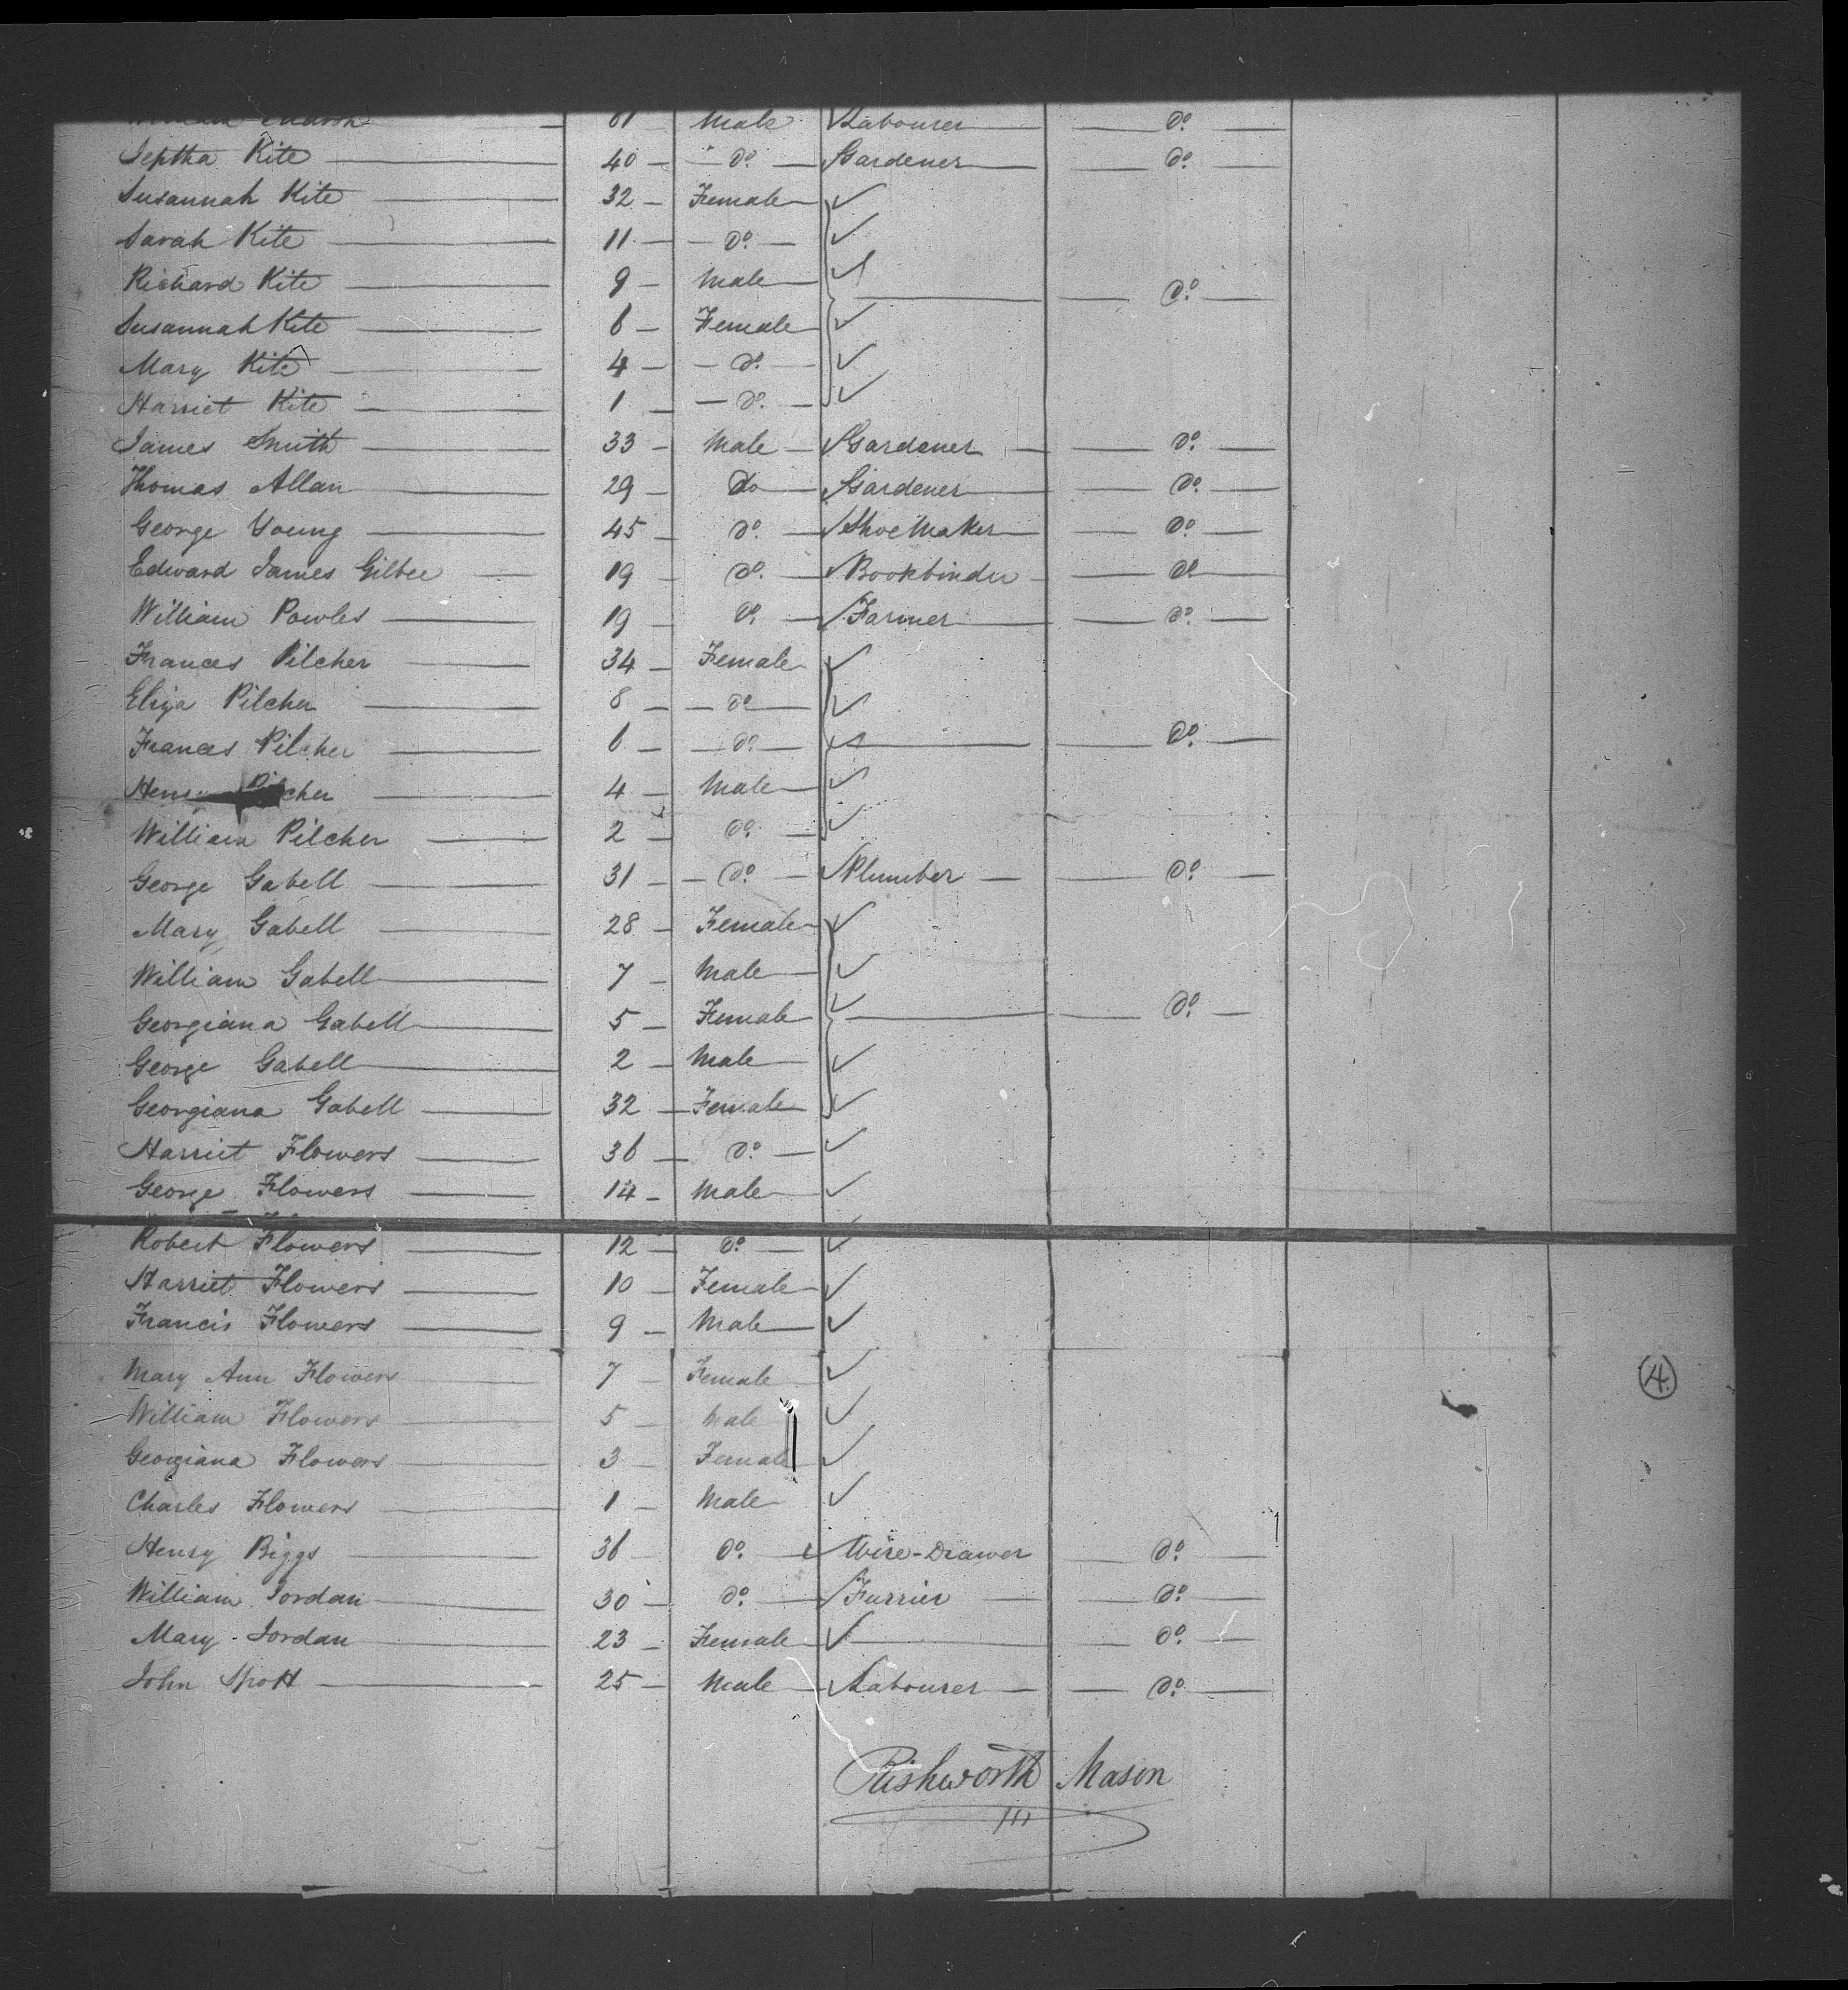 Male Labourer do
Jeptha Kite 40 do Gardener do
Susannah Kite 32 Female
Sarah Kite 11 do
Richard Kite 9 Male do
Susannah Kite 6 Female
Mary Kite 4 do
Harriet Kite 1 do
James Smith 33 Male Gardener do
Thomas Allan 29 Do Gardener do
George Young 45 do Shoe Maker do
Edward James Gilbee 19 do Bookbinder do
William Powles 19 do Farmer do
Frances Pilcher 34 Female
Eliza Pilcher 8 do
Frances Pilcher 6 do do
Henry Pilcher 4 Male
William Pilcher 2 do
George Gabell 31 do Plumber do
Mary Gabell 28 Female
William Gabell 7 Male
Georgiana Gabell 5 Female do
George Gabell 2 Male
Georgiana Gabell 32 Female
Harriet Flowers 36 do
George Flowers 14 Male
Robert Flowers 12 do
Harriet Flowers 10 Female
Francis Flowers 9 Male
Mary Ann Flowers 7 Female
4
William Flowers 5 Male
Georgiana Flowers 3 Female
Charles Flowers 1 Male
Henry Biggs 36 do Wire-Drawer do
William Jordan 30 do Furrier do
Mary Jordan 23 Female do
John Spott 25 Male Labourer do
Rishworth Mason